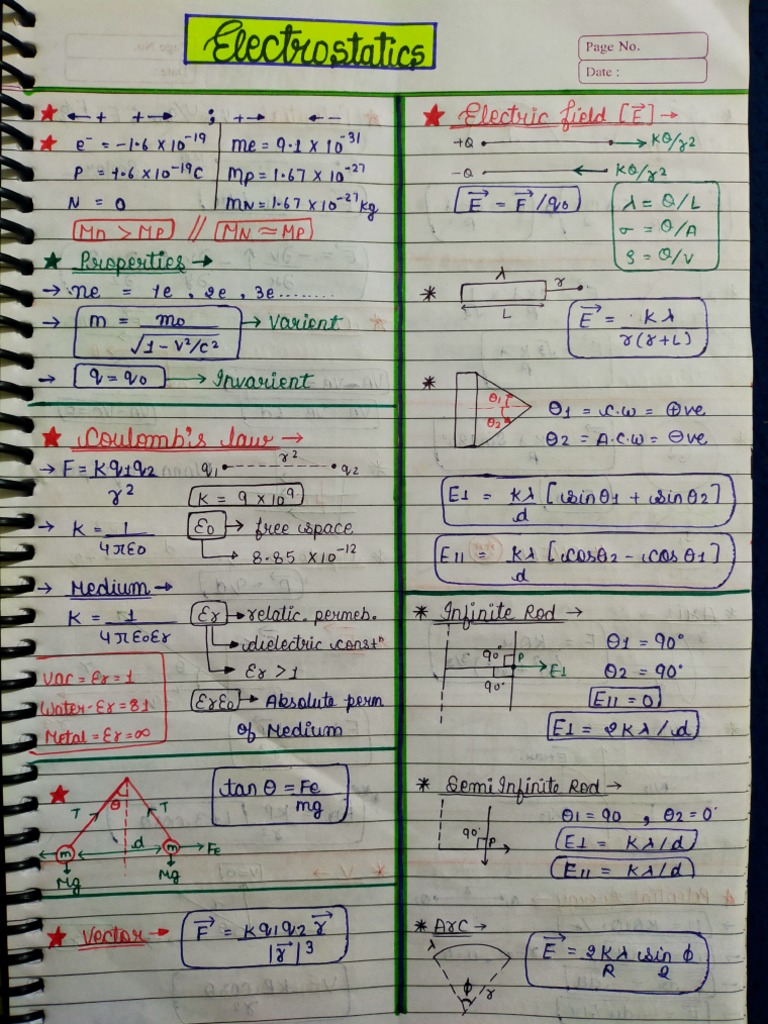 Electrostatics
Page No.
Date :
★ ←+ +→ ; +→ ←-
★ e⁻ = -1.6 × 10⁻¹⁹ me = 9.1 × 10⁻³¹
P = 1.6 × 10⁻¹⁹C Mp = 1.67 × 10⁻²⁷
N = 0 MN = 1.67 × 10⁻²⁷ kg
Mn > Mp // MN ≈ Mp
★ Properties →
→ ne = 1e, 2e, 3e........
→ m = mo/√1-v²/c² → Varient
→ q = q0 → Invarient
★ Coulomb's law →
→ F = Kq1q2/r² q1 r² q2
K = 9 × 10⁹
→ K = 1/4πε0 ε0 → free space
→ 8.85 × 10⁻¹²
→ Medium →
K = 1/4πε0εr εr → relatic. permeb.
→ dielectric constⁿ
→ εr > 1
Vac = εr = 1
Water - εr = 81
Metal = εr = ∞
εrε0 → Absolute perm
of Medium
★ tanθ = Fe/mg
θ
T T
m d m → Fe
Mg Mg
★ Vector → F⃗ = Kq1q2 r⃗/|r⃗|³
★ Electric field [E⃗] →
+Q → KQ/r²
-Q ← KQ/r²
E⃗ = F⃗/q0
λ = Q/L
σ = Q/A
ρ = Q/V
* λ r
L
E⃗ = Kλ/r(r+L)
* θ1 θ2
θ1 = C.W = ⊕ve
θ2 = A.C.W = ⊖ve
E⊥ = Kλ/d [sinθ1 + sinθ2]
E|| = Kλ/d [cosθ2 - cosθ1]
* Infinite Rod →
90° P → E⊥
90°
θ1 = 90°
θ2 = 90°
E|| = 0
E⊥ = 2Kλ/d
* Semi Infinite Rod →
θ1 = 90, θ2 = 0°
90° P
E⊥ = Kλ/d
E|| = Kλ/d
* Arc →
λ
ϕ r
E⃗ = 2Kλ/R sin ϕ/2